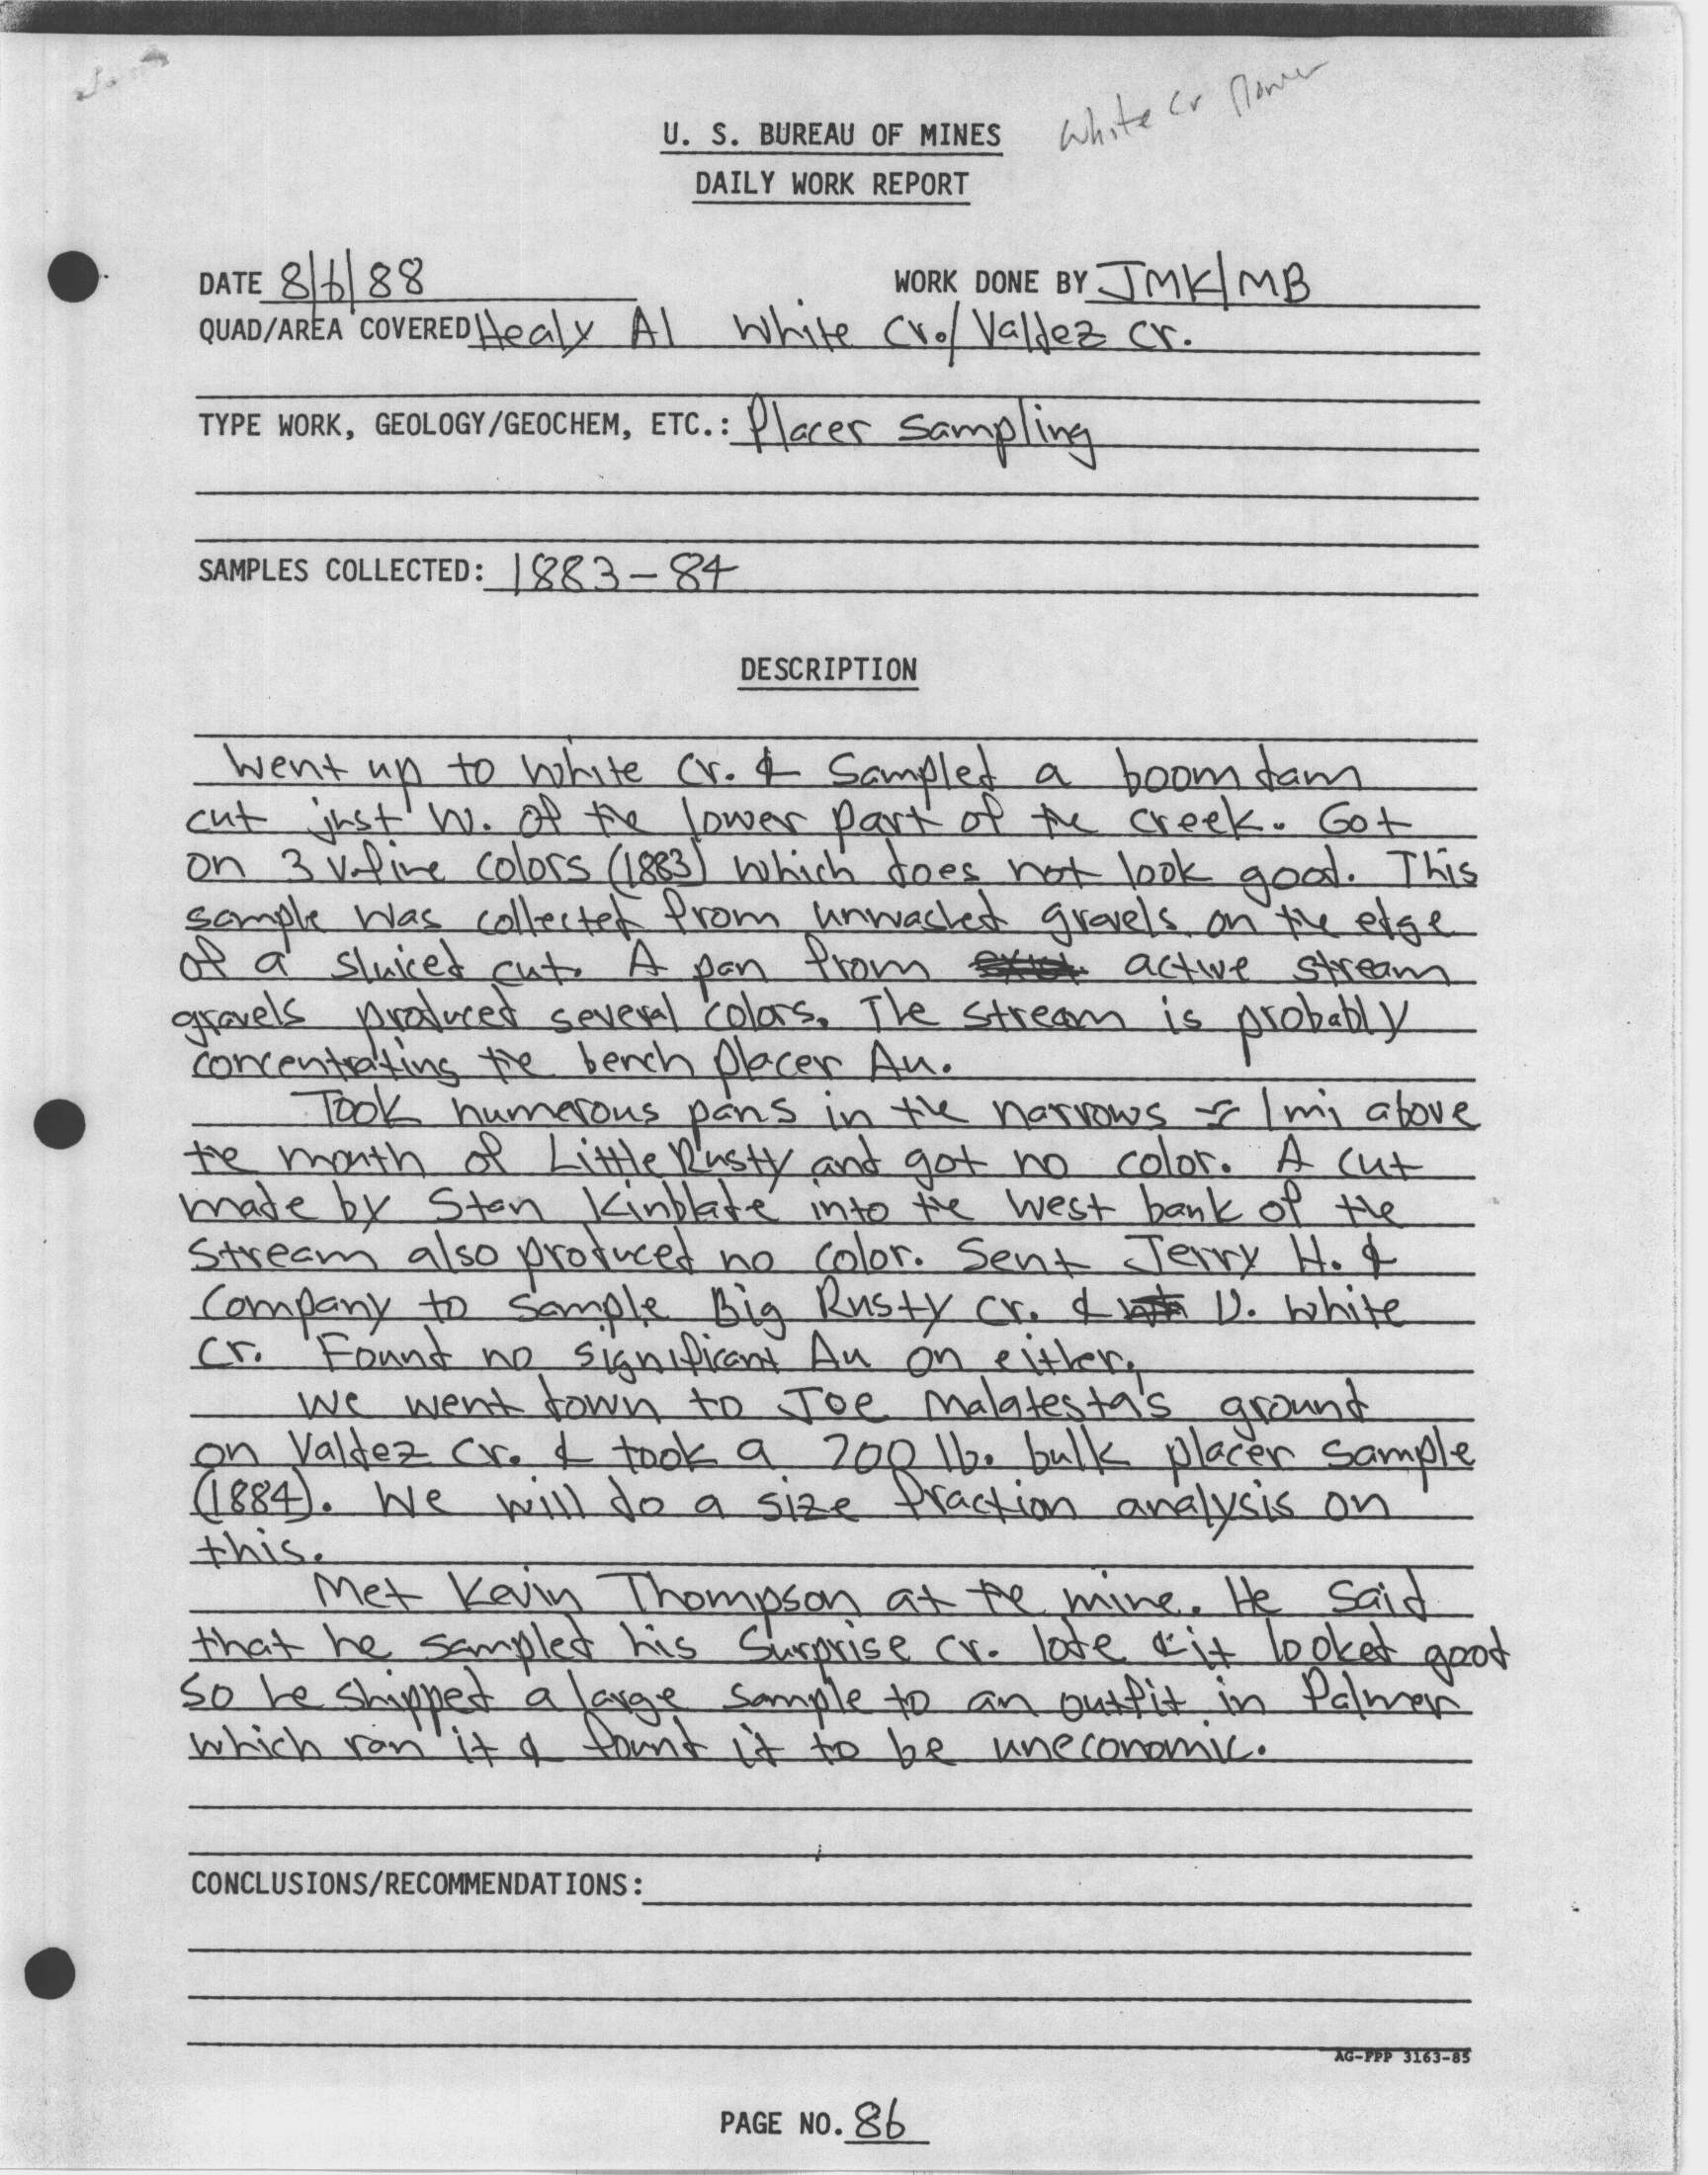 White Cr
U. S. BUREAU OF MINES
DAILY WORK REPORT
DATE 8/6/88 WORK DONE BY JMK/MB
QUAD/AREA COVERED Healy A1 White Cr./Valdez Cr.
TYPE WORK, GEOLOGY/GEOCHEM, ETC.: Placer Sampling
SAMPLES COLLECTED: 1883-84
DESCRIPTION
Went up to White Cr. & Sampled a boomdam
cut just W. of the lower part of the creek. Got
on 3 v.fine colors (1883) which does not look good. This
sample was collected from unwashed gravels on the edge
of a sluiced cut. A pan from active stream
gravels produced several colors. The stream is probably
concentrating the bench placer Au.
Took numerous pans in the narrows 1 mi above
the mouth of Little Rusty and got no color. A cut
made by Stan Kinblade into the west bank of the
Stream also produced no color. Sent Jerry H. &
Company to sample Big Rusty Cr. & U. White
Cr. Found no significant Au on either.
We went down to Joe Malatesta's ground
on Valdez Cr. & took a 200 lb. bulk placer sample
(1884). We will do a size fraction analysis on
this.
Met Kevin Thompson at the mine. He said
that he sampled his Surprise Cr. lode & it looked good
so he shipped a large sample to an outfit in Palmer
which ran it & found it to be uneconomic.
CONCLUSIONS/RECOMMENDATIONS:
AG-FPP 3163-85
PAGE NO. 86